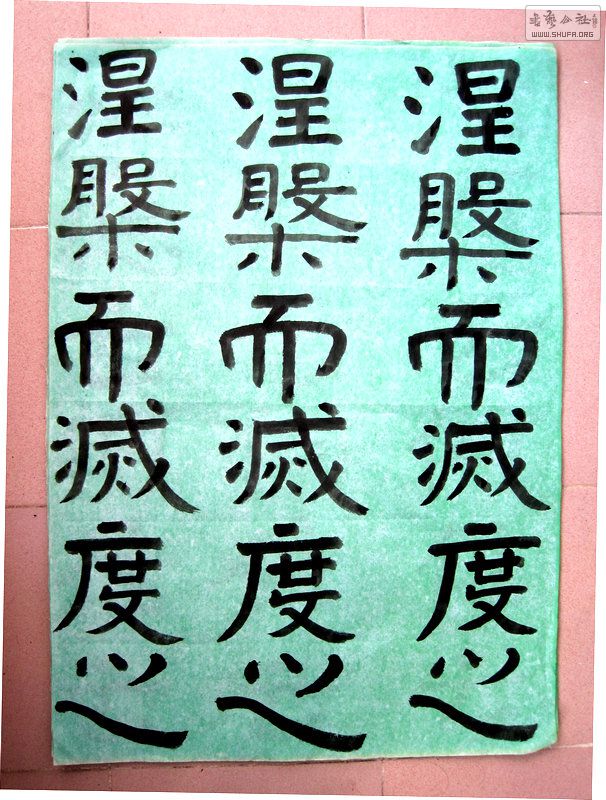 涅槃而滅度之
涅槃而滅度之
涅槃而滅度之
書藝公社
WWW.SHUFA.ORG